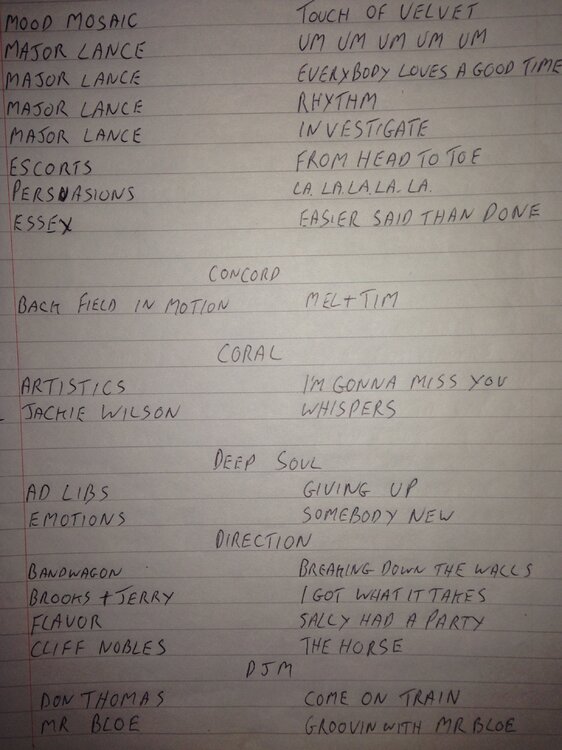 MOOD MOSAIC TOUCH OF VELVET
MAJOR LANCE UM UM UM UM UM
MAJOR LANCE EVERYBODY LOVES A GOOD TIME
MAJOR LANCE RHYTHM
MAJOR LANCE INVESTIGATE
ESCORTS FROM HEAD TO TOE
PERSUASIONS LA. LA. LA. LA. LA.
ESSEX EASIER SAID THAN DONE
CONCORD
BACK FIELD IN MOTION MEL + TIM
CORAL
ARTISTICS I'M GONNA MISS YOU
JACKIE WILSON WHISPERS
DEEP SOUL
AD LIBS GIVING UP
EMOTIONS SOMEBODY NEW
DIRECTION
BANDWAGON BREAKING DOWN THE WALLS
BROOKS + JERRY I GOT WHAT IT TAKES
FLAVOR SALLY HAD A PARTY
CLIFF NOBLES THE HORSE
DJM
DON THOMAS COME ON TRAIN
MR BLOE GROOVIN WITH MR BLOE